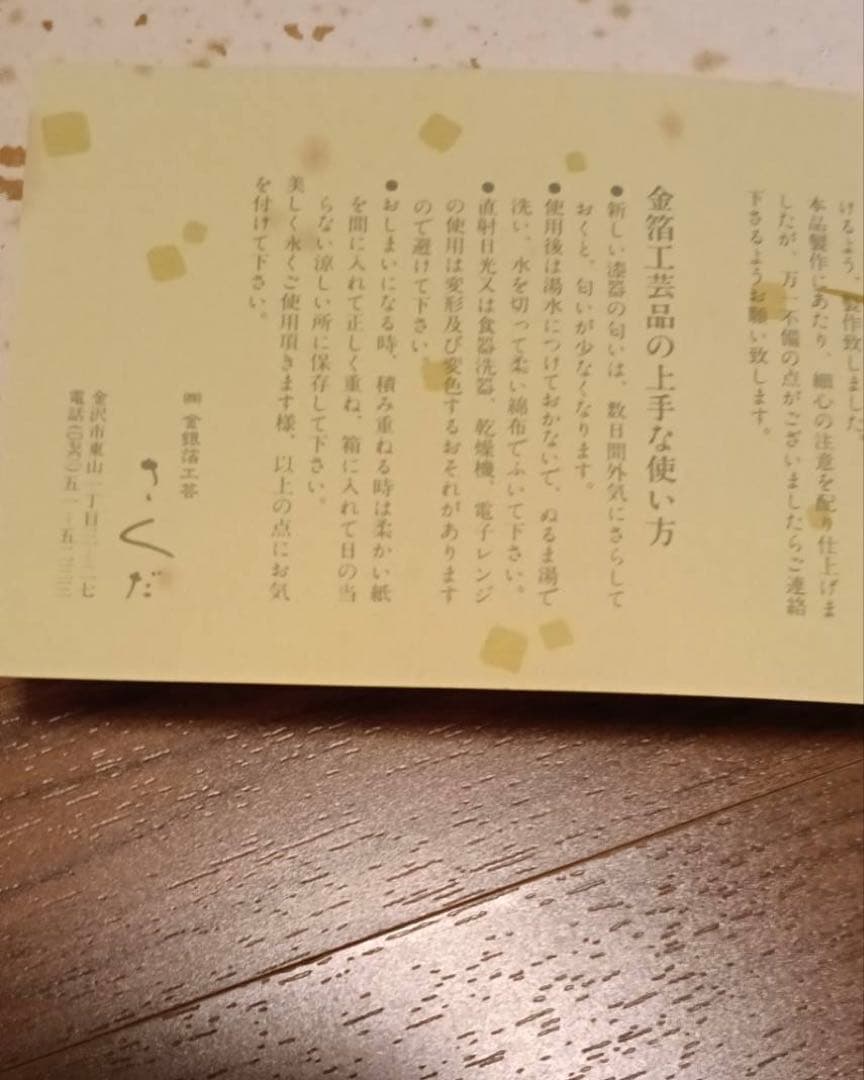 けるよう、製作致しました。
本品製作にあたり、細心の注意を配り仕上げま
したが、万一不備の点がございましたらご連絡
下さるようお願い致します。
金箔工芸品の上手な使い方
●新しい漆器の匂いは、数日間外気にさらして
おくと、匂いが少なくなります。
●使用後は湯水につけておかないで、ぬるま湯で
洗い、水を切って柔い綿布でふいて下さい。
●直射日光又は食器洗器、乾燥機、電子レンジ
の使用は変形及び変色するおそれがあります
ので避けて下さい。
●おしまいになる時、積み重ねる時は柔かい紙
を間に入れて正しく重ね、箱に入れて日の当
らない涼しい所に保存して下さい。
美しく永くご使用頂きます様、以上の点にお気
を付けて下さい。
㈱金銀箔工芸
さくだ
金沢市東山一丁目三―二七
電話